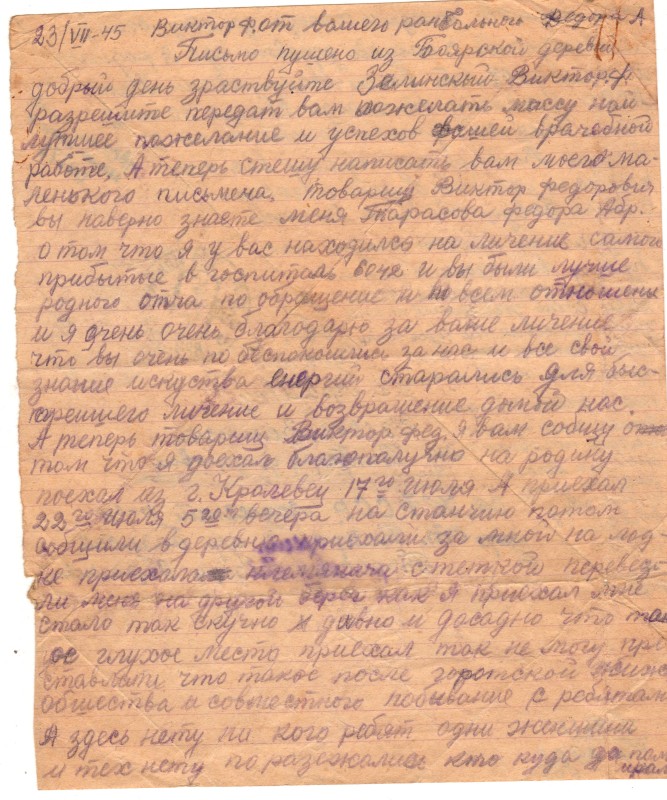 23/VII-45 Виктор ф. от вашего ранбольного Федора А
Письмо пущено из Боярской деревни
добрый день зраствуйте Зелинский Виктор ф.
разрешите передат вам пожелать массу най
лутшее пожелание и успехов вашей врачебной
работе. А теперь спешу написать вам моего ма-
ленького письмеца, товарищ Виктор федорович
вы наверно знаете меня Тарасова федора Абр.
о том что я у вас находился на личение самого
прибытые в госпиталь и вы были лучше
родного отча по обращение и по всем отношены
и я очень очень благодарю за ваше личение
что вы очень по беспокоились за нас и все свой
знание искуства енергий старались для быс-
трейшего личение и возвращение домой нас.
А теперь товарищ Виктор фед. я вам собщу о
том что я доехал благополучно на родину
поехал из г. Кролевец 17го июля А приехал
22го июля 5 вечера на станчию потом
сообщили в деревню приехали за мной на лод-
ке приехала племянача с теткой перевез-
ли меня на другой берег как я приехал мне
стало так скучно и дивно и досадно что так
ое глухое место приехал так не могу пре
ставлати что такое после горотской жизни
общества и совместного побывание с ребятам
А здесь нету ни кого ребят одни женщини
и тех нету по разежались кто куда да пом
ирали